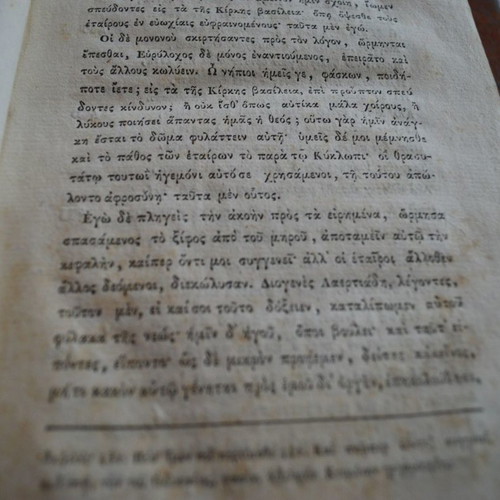 σπεύδοντες εἰς τὰ τῆς Κίρκης βασίλεια· ὅπη ὄψεσθε τοὺς
ἑταίρους ἐν εὐωχίαις εὐφραινομένους· ταῦτα μὲν ἐγώ.
Οἱ δὲ μονονοὺ σκιρτήσαντες πρὸς τὸν λόγον, ὥρμηνται
ἕπεσθαι, Εὐρύλοχος δὲ μόνος ἐναντιούμενος, ἐπειρᾶτο καὶ
τοὺς ἄλλους κωλύειν. Ὢ νήπιοι ἡμεῖς γε, φάσκων, ποιδή-
ποτε ἴετε; εἰς τὰ τῆς Κίρκης βασίλεια, ἐπὶ προὖπτον σπεύ
δοντες κίνδυνον; ἢ οὐκ ἔσθ' ὅπως αὐτίκα μάλα χοίρους, ἢ
λύκους ποιήσει ἅπαντας ἡμᾶς ἡ θεός; οὕτω γὰρ ἡμῖν ἀνάγ-
κη ἔσται τὸ δῶμα φυλάττειν αὐτῇ· ὑμεῖς δέ μοι μέμνησθε
καὶ τὸ πάθος τῶν ἑταίρων τὸ παρὰ τῷ Κύκλωπι· οἱ θρασυ-
τάτῳ τουτωῒ ἡγεμόνι αὐτόσε χρησάμενοι, τῇ τούτου ἀπώ-
λοντο ἀφροσύνῃ· ταῦτα μὲν οὗτος.
Ἐγὼ δὲ πληγεὶς τὴν ἀκοὴν πρὸς τὰ εἰρημένα, ὥρμησα
σπασάμενος τὸ ξίφος ἀπὸ τοῦ μηροῦ, ἀποταμεῖν αὐτῷ τὴν
κεφαλήν, καίπερ ὄντι μοι συγγενεῖ· ἀλλ' οἱ ἑταῖροι ἄλλοθεν
ἄλλος δεόμενοι, διεκώλυσαν. Διογενὲς Λαερτιάδη, λέγοντες,
τοῦτον μὲν, εἰ καὶ σοὶ τοῦτο δόξειεν, καταλίπωμεν αὐτοῦ
φύλακα τῆς νεώς· ἡμῖν δ' ἡγοῦ, ὅποι βούλει· καὶ ταῦτ' εἰ-
πόντες, εἵποντο· ὡς δὲ μικρὸν προῄειμεν,